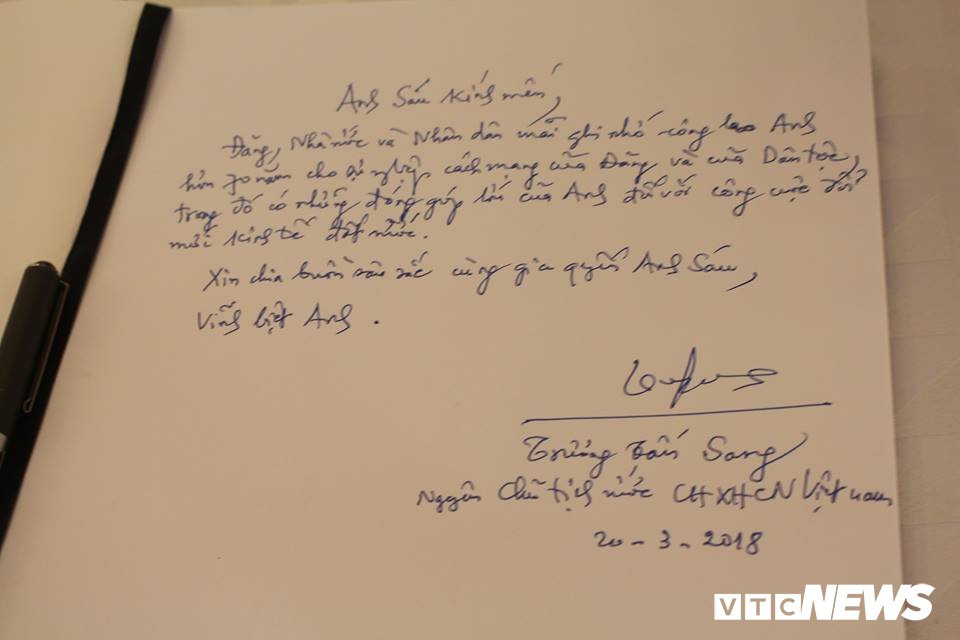 Anh Sáu kính mến,
Đảng, Nhà nước và Nhân dân mãi ghi nhớ công lao Anh
hơn 70 năm cho sự nghiệp cách mạng của Đảng và của Dân tộc,
trong đó có những đóng góp lớn của Anh đối với công cuộc đổi
mới kinh tế đất nước.
Xin chia buồn sâu sắc cùng gia quyến Anh Sáu,
Vĩnh biệt Anh.
Trương Tấn Sang
Nguyên Chủ tịch nước CHXHCN Việt nam
20-3-2018
VTC NEWS